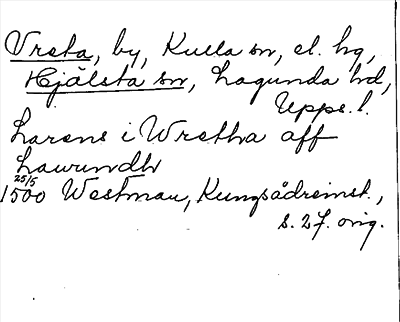 Vreta, by, Kulla sn, el. hg,
Hjälsta sn, Lagunda hd,
Upps. l.
Larens i Wretha aff
Lawundh
25/5
1500 Westman, Kungsådreinst.,
s. 27. orig.